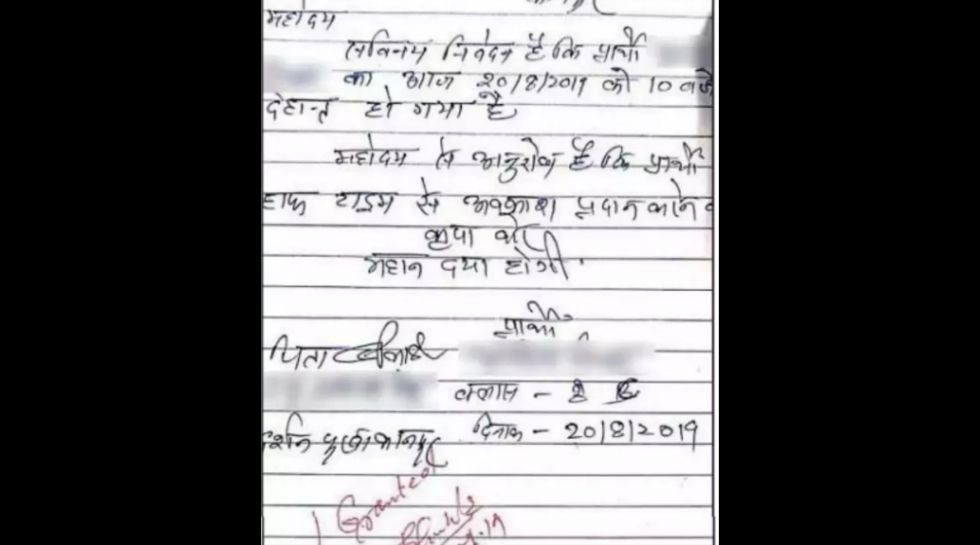 महोदय
सविनय निवेदन है कि प्रार्थी
का आज 20/8/2019 को 10 बजे
देहान्त हो गया है
महोदय से अनुरोध है कि प्रार्थी
हाफ टाइम से अवकाश प्रदान करने
कृपा करें
महान दया होगी.
प्रार्थी
पिता
क्लास - 8
दिनांक - 20/8/2019
Granted